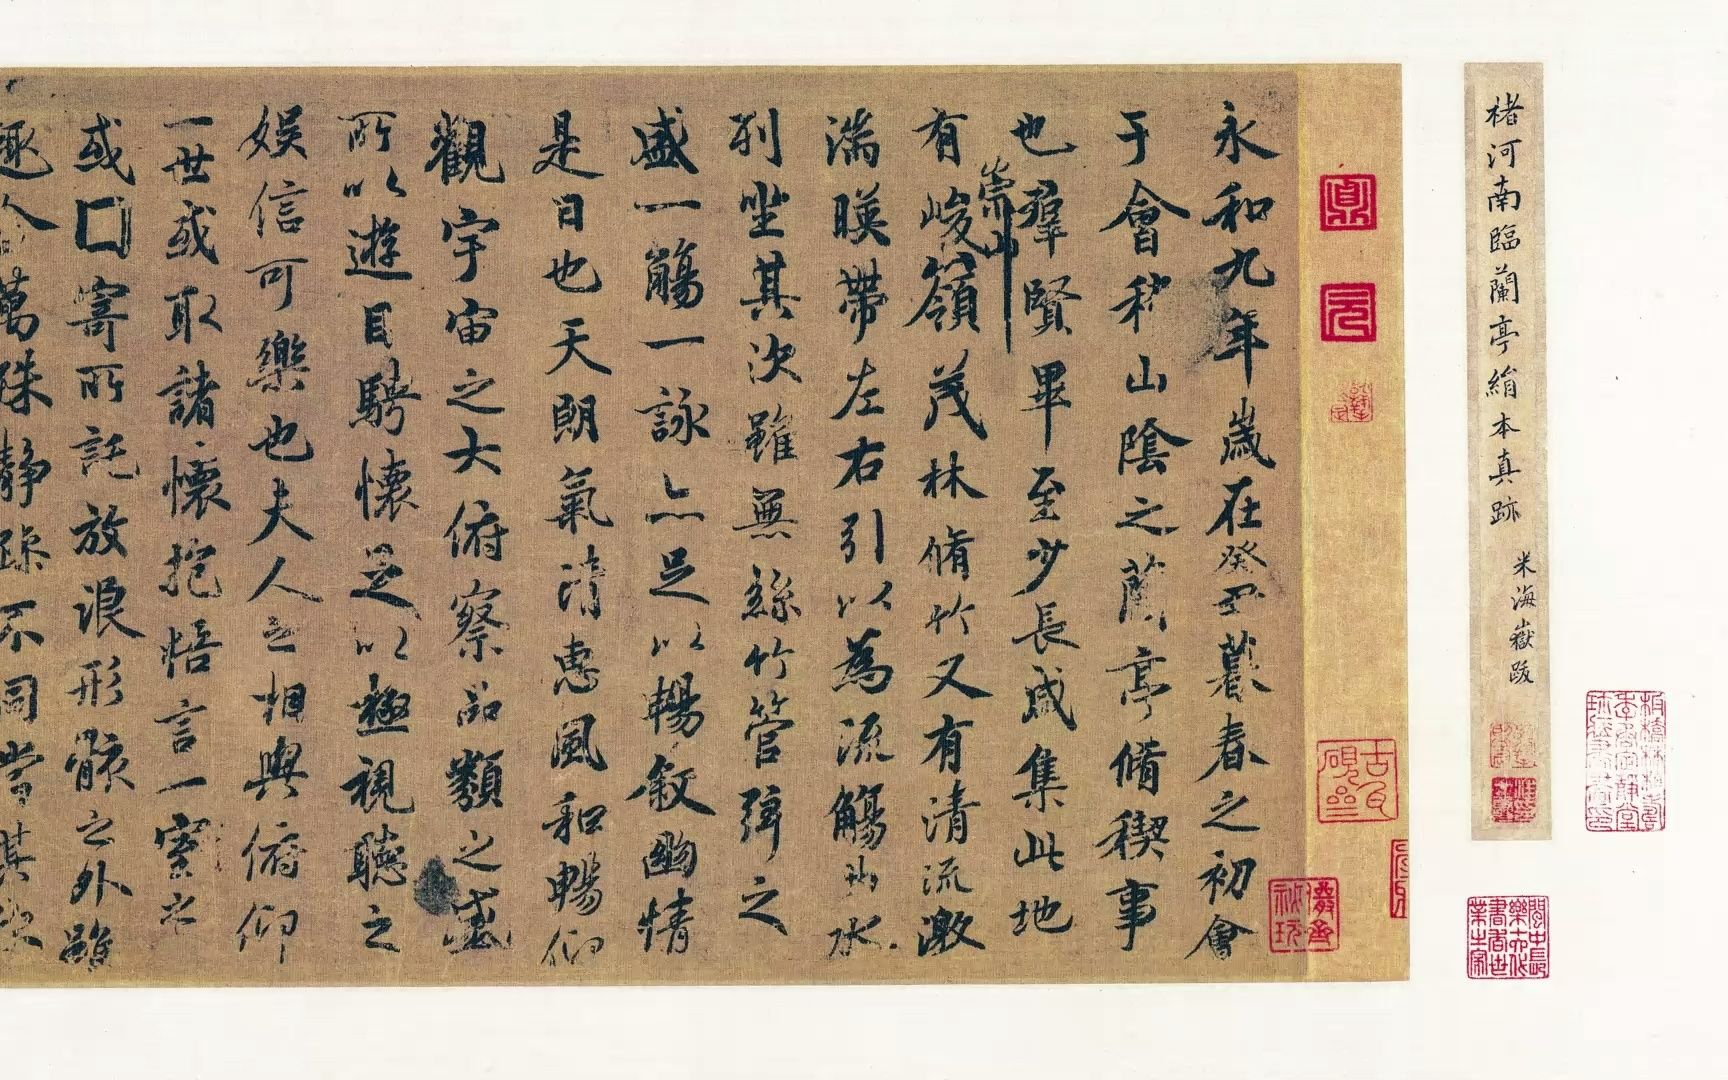 楮河南臨蘭亭絹本真跡
米海嶽跋
鼎
元
古瓦硯齋
儼齋秘玩
永和九年歲在癸丑暮春之初會
于會稽山陰之蘭亭脩稧事
也羣賢畢至少長咸集此地
有崇山峻嶺茂林脩竹又有清流激
湍暎帶左右引以為流觴曲水
列坐其次雖無絲竹管弦之
盛一觴一詠亦足以暢敘幽情
是日也天朗氣清惠風和暢仰
觀宇宙之大俯察品類之盛
所以遊目騁懷足以極視聽之
娛信可樂也夫人之相與俯仰
一世或取諸懷抱悟言一室之
或囗寄所託放浪形骸之外雖
趣舍萬殊靜躁不同當其欣